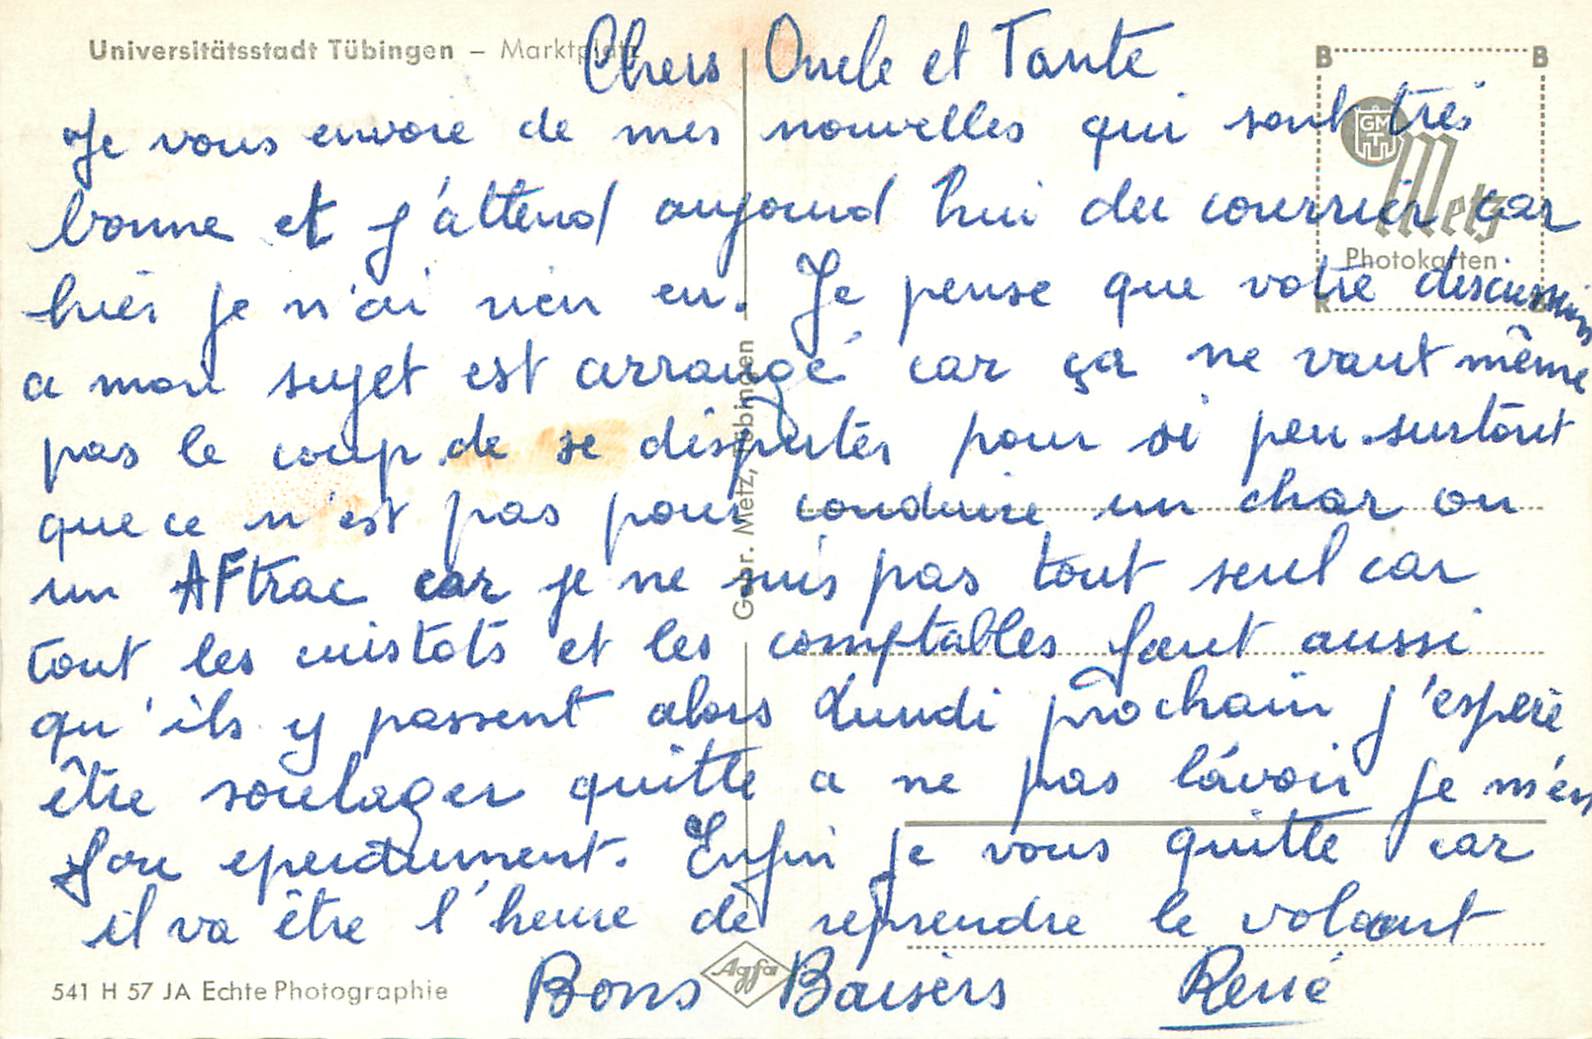 Universitätsstadt Tübingen – Marktplatz
Chers Oncle et Tante
Je vous envoie de mes nouvelles qui sont très
bonne et j'attend aujourd hui du courrier car
hier je n'ai rien eu. Je pense que votre discussion
a mon sujet est arrangé car ça ne vaut même
pas le coup de se disputer pour si peu surtout
que ce n'est pas pour conduire un char ou
un AFtrac car je ne suis pas tout seul car
tout les cuistots et les comptables faut aussi
qu'ils y passent alors Lundi prochain j'espere
être soulager quitte a ne pas l'avoir je m'en
fou eperdument. Enfin je vous quitte car
il va être l'heure de reprendre le volant
Bons Baisers René
541 H 57 JA Echte Photographie
Gebr. Metz, Tübingen
Agfa
B B
GM
T
Metz
Photokarten
R